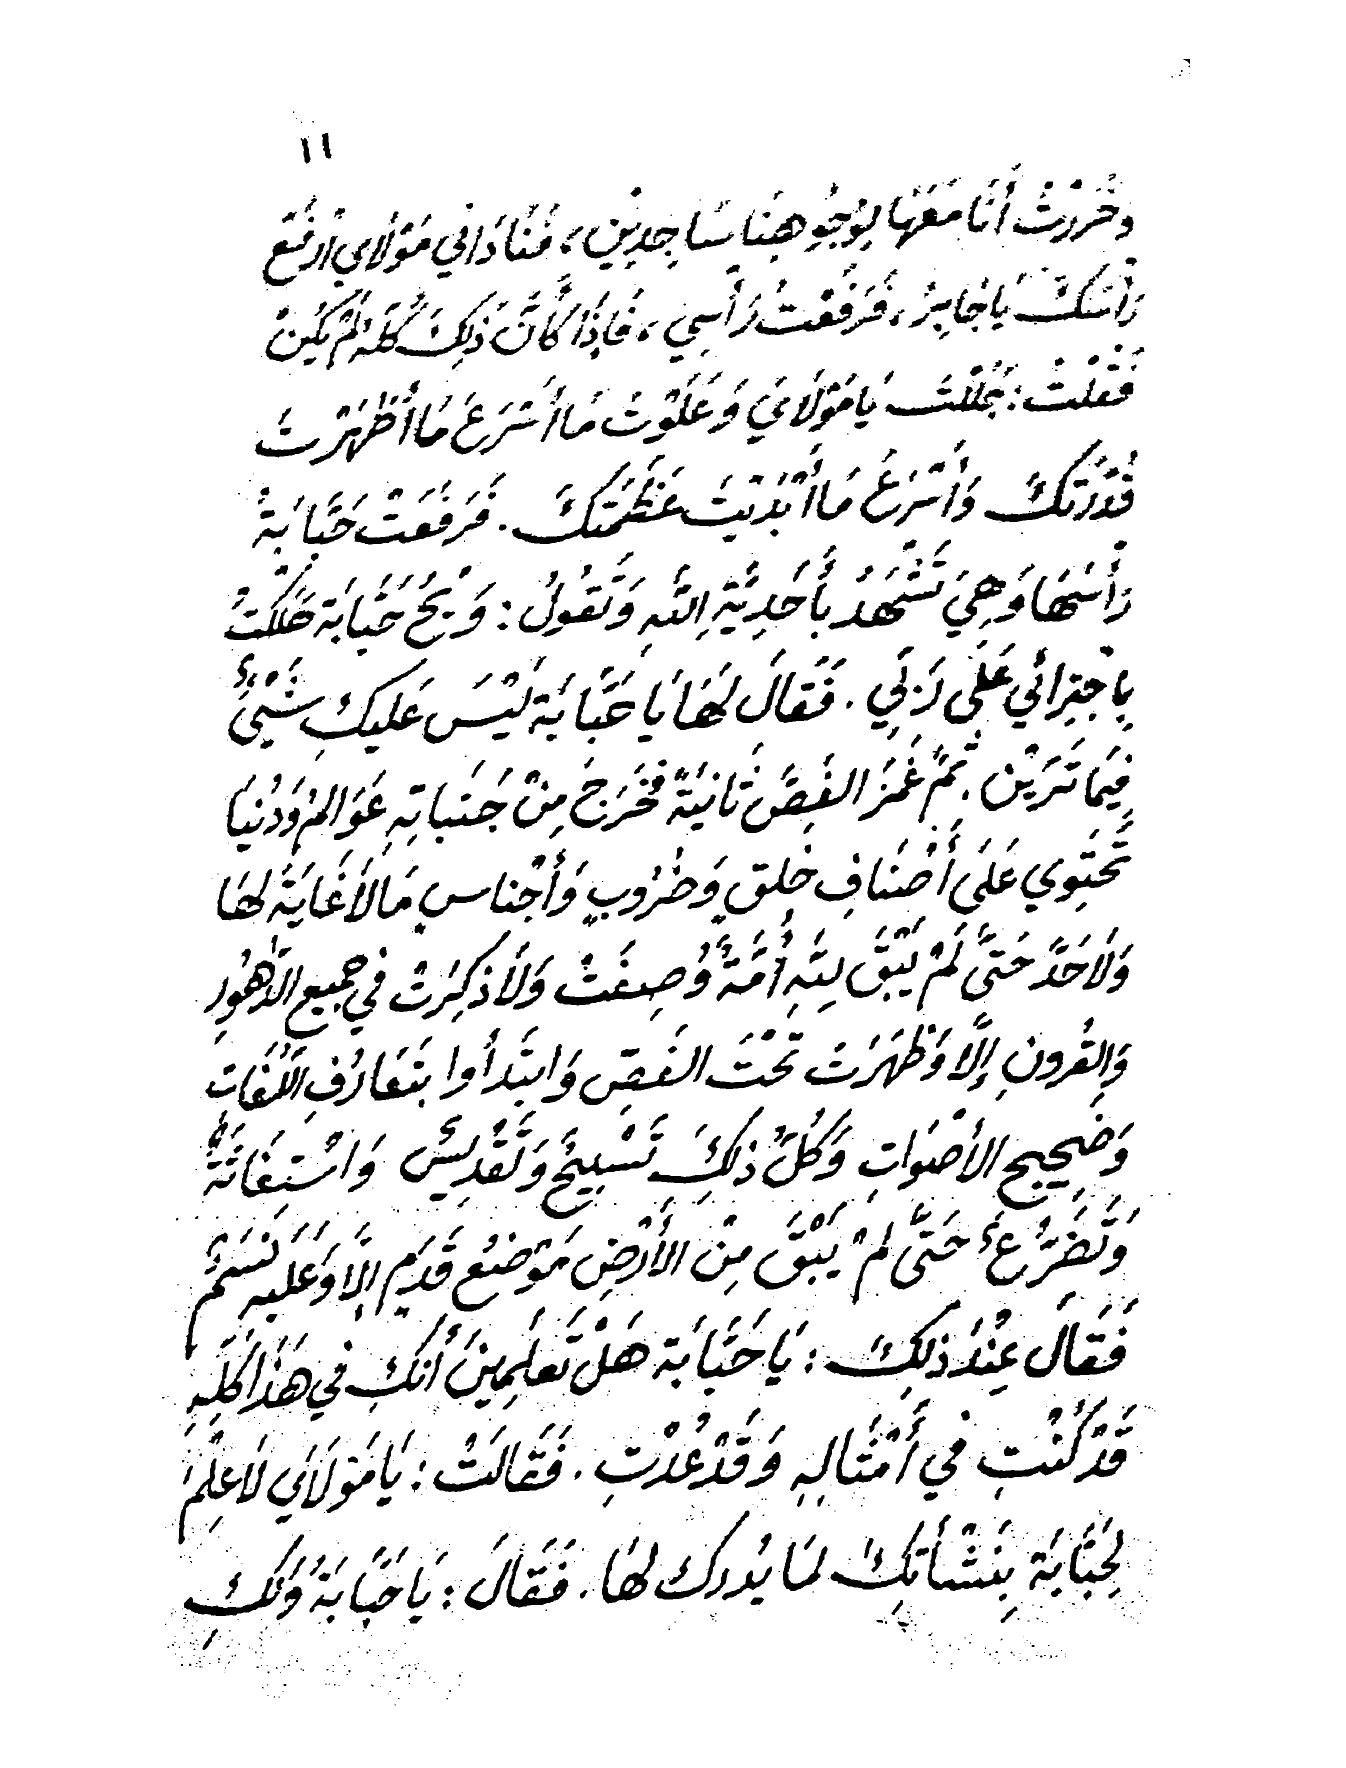 ١١
وَخَرَرْتُ أَنَا مَعَهَا بِوُجُوِهِنَا سَاجِدِيْنِ، فَنَادَانِي مَوْلَايَ ارْفَعْ
رَأْسَكَ يَا جَابِرُ، فَرَفَعْتُ رَأْسِي، فَإِذَا كَأَنَّ ذَلِكَ كُلَّهُ لَمْ يَكُنْ
فَقُلْتُ: جَلَلْتَ يَا مَوْلَايَ وَعَلَوْتَ مَا أَسْرَعَ مَا أَظْهَرْتَ
قُدْرَتَكَ وَأَسْرَعَ مَا أَبْدَيْتَ عَظَمَتَكَ. فَرَفَعَتْ حَبَّابَةُ
رَأْسَهَا وَهِيَ تَشْهَدُ بِأَحَدِيَّةِ اللهِ وَتَقُولُ: وَيْحَ حَبَّابَة هَلَكَتْ
بِاجْتِرَائي عَلَى رَبِّي. فَقَالَ لَهَا يَا حَبَّابَة لَيْسَ عَلَيكِ شَيْئٌ
فِيمَا تَرَيْنَ. ثُمَّ غَمَزَ الفَصَّ ثَانِيَةً فَخَرَجَ مِنْ جَنَباتِهِ عَوَالمُ وَدُنيَا
تَحْتَوِي عَلَى أَصْنَافِ خَلقٍ وَضُرُوبٍ وَأَجْناسٍ مَا لَا غَايَةَ لَهَا
وَلَا حَدَّ حَتَّى لَمْ يَبْقَ لِلَّهِ أُمَّةٌ وُصِفَتْ وَلَا ذُكِرَتْ في جَمِيعِ الدُّهُورِ
وَالقُرونِ إِلَّا وَظَهَرَتْ تَحْتَ الفَصِّ وَابتَدَأوا بِتَعَارُفِ اللُّغَات
وَضَجِيجِ الأَصْوَاتِ وَكُلُّ ذلِكَ تَسْبِيحٌ وَتَقْدِيسٌ وَاسْتِغَاثَةٌ
وَتَضَرُّعٌ حَتَّى لَمْ يَبْقَ مِنْ الأَرْضِ مَوْضِعُ قَدَمٍ إلَّا وَعَليهِ نَسَمٌ
فَقَالَ عِنْدَ ذلِكَ: يَا حَبَّابَة هَلْ تَعلَمِينَ أَنَّكِ في هَذَا كُلِّهِ
قَدْ كُنْتِ في أَمْثَالِهِ وَقَدْ عُدْتِ. فَقَالَتْ: يَا مَوْلَايَ لَا عِلْمَ
لِحَبَّابَة بِنَشْأَتِكَ لمَا يُدرَك لَهَا. فَقَالَ: يَا حَبَّابَةُ وَلَكِ